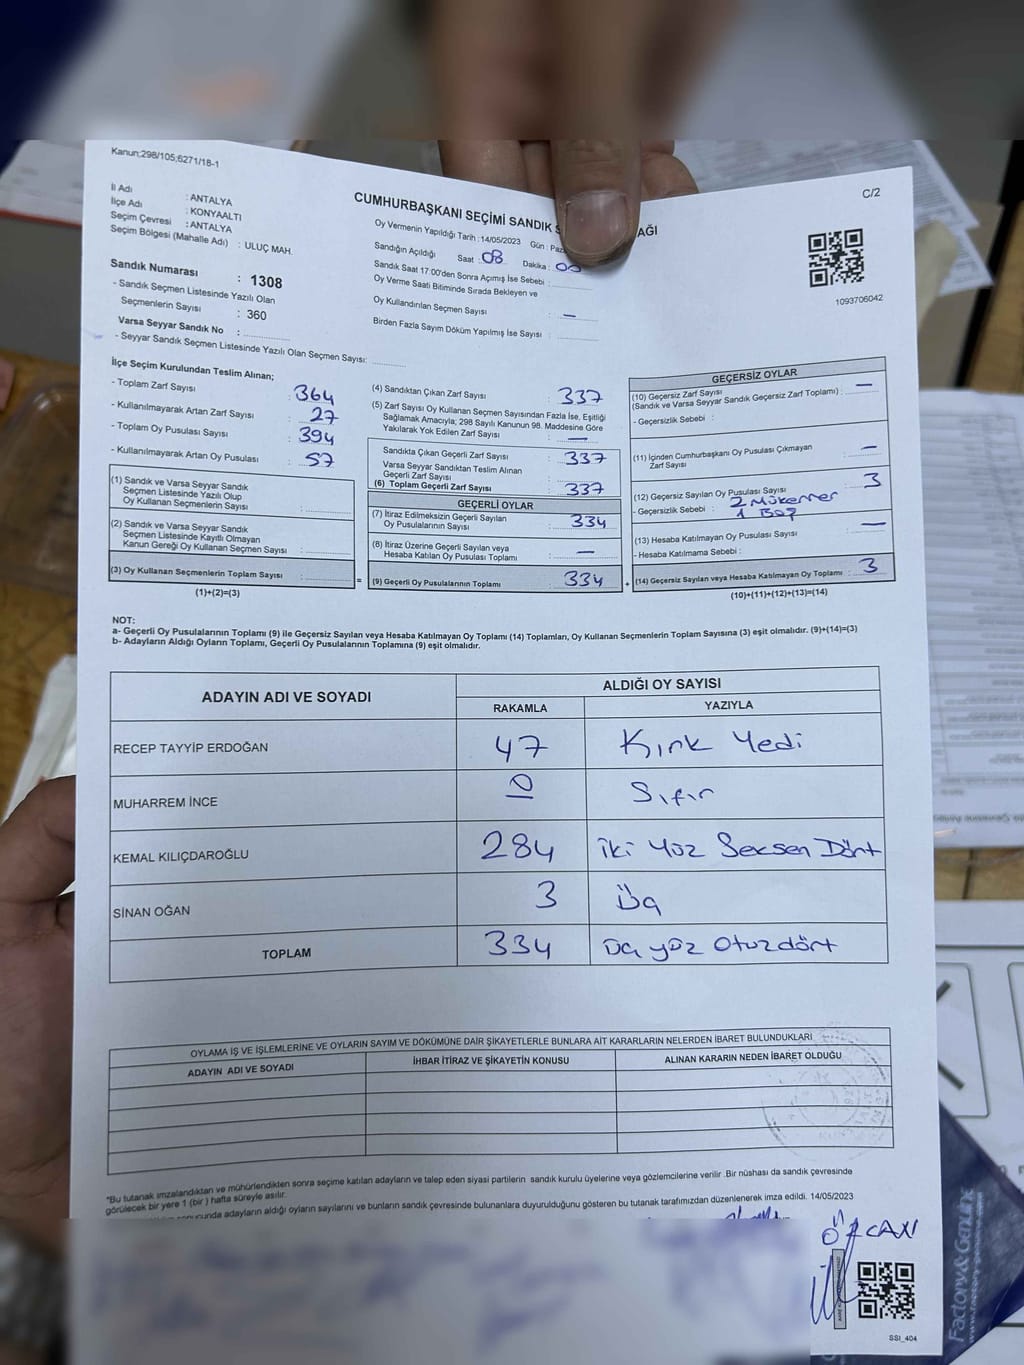 Kanun;298/105;6271/18-1
C/2
İl Adı : ANTALYA
İlçe Adı : KONYAALTI
Seçim Çevresi : ANTALYA
Seçim Bölgesi (Mahalle Adı) : ULUÇ MAH.
Sandık Numarası : 1308
- Sandık Seçmen Listesinde Yazılı Olan
Seçmenlerin Sayısı : 360
Varsa Seyyar Sandık No :
- Seyyar Sandık Seçmen Listesinde Yazılı Olan Seçmen Sayısı:
CUMHURBAŞKANI SEÇİMİ SANDIK
Oy Vermenin Yapıldığı Tarih :14/05/2023 Gün :
Sandığın Açıldığı Saat : 08 Dakika :
Sandık Saat 17:00'den Sonra Açımış İse Sebebi :
Oy Verme Saati Bitiminde Sırada Bekleyen ve
Oy Kullandırılan Seçmen Sayısı : —
Birden Fazla Sayım Döküm Yapılmış İse Sayısı :
1093706042
İlçe Seçim Kurulundan Teslim Alınan;
- Toplam Zarf Sayısı : 364
- Kullanılmayarak Artan Zarf Sayısı : 27
- Toplam Oy Pusulası Sayısı : 394
- Kullanılmayarak Artan Oy Pusulası : 57
(1) Sandık ve Varsa Seyyar Sandık
Seçmen Listesinde Yazılı Olup
Oy Kullanan Seçmenlerin Sayısı :
(2) Sandık ve Varsa Seyyar Sandık
Seçmen Listesinde Kayıtlı Olmayan
Kanun Gereği Oy Kullanan Seçmen Sayısı :
(3) Oy Kullanan Seçmenlerin Toplam Sayısı :
(1)+(2)=(3)
(4) Sandıktan Çıkan Zarf Sayısı : 337
(5) Zarf Sayısı Oy Kullanan Seçmen Sayısından Fazla İse, Eşitliği
Sağlamak Amacıyla; 298 Sayılı Kanunun 98. Maddesine Göre
Yakılarak Yok Edilen Zarf Sayısı : —
Sandıkta Çıkan Geçerli Zarf Sayısı : 337
Varsa Seyyar Sandıktan Teslim Alınan
Geçerli Zarf Sayısı :
(6) Toplam Geçerli Zarf Sayısı : 337
GEÇERLİ OYLAR
(7) İtiraz Edilmeksizin Geçerli Sayılan
Oy Pusulalarının Sayısı : 334
(8) İtiraz Üzerine Geçerli Sayılan veya
Hesaba Katılan Oy Pusulası Toplamı : —
= (9) Geçerli Oy Pusulalarının Toplamı : 334
GEÇERSİZ OYLAR
(10) Geçersiz Zarf Sayısı
(Sandık ve Varsa Seyyar Sandık Geçersiz Zarf Toplamı) : —
- Geçersizlik Sebebi :
(11) İçinden Cumhurbaşkanı Oy Pusulası Çıkmayan
Zarf Sayısı : —
(12) Geçersiz Sayılan Oy Pusulası Sayısı : 3
- Geçersizlik Sebebi : 2 Mükerrer
1 Boş
(13) Hesaba Katılmayan Oy Pusulası Sayısı : —
- Hesaba Katılmama Sebebi :
+ (14) Geçersiz Sayılan veya Hesaba Katılmayan Oy Toplamı : 3
(10)+(11)+(12)+(13)=(14)
NOT:
a- Geçerli Oy Pusulalarının Toplamı (9) ile Geçersiz Sayılan veya Hesaba Katılmayan Oy Toplamı (14) Toplamları, Oy Kullanan Seçmenlerin Toplam Sayısına (3) eşit olmalıdır. (9)+(14)=(3)
b- Adayların Aldığı Oyların Toplamı, Geçerli Oy Pusulalarının Toplamına (9) eşit olmalıdır.
ADAYIN ADI VE SOYADI
ALDIĞI OY SAYISI
RAKAMLA YAZIYLA
RECEP TAYYİP ERDOĞAN 47 Kırk Yedi
MUHARREM İNCE 0 Sıfır
KEMAL KILIÇDAROĞLU 284 iki Yüz Seksen Dört
SİNAN OĞAN 3 Üç
TOPLAM 334 Üç yüz Otuzdört
OYLAMA İŞ VE İŞLEMLERİNE VE OYLARIN SAYIM VE DÖKÜMÜNE DAİR ŞİKAYETLERLE BUNLARA AİT KARARLARIN NELERDEN İBARET BULUNDUKLARI
ADAYIN ADI VE SOYADI İHBAR İTİRAZ VE ŞİKAYETİN KONUSU ALINAN KARARIN NEDEN İBARET OLDUĞU
"Bu tutanak imzalandıktan ve mühürlendikten sonra seçime katılan adayların ve talep eden siyasi partilerin sandık kurulu üyelerine veya gözlemcilerine verilir .Bir nüshası da sandık çevresinde
görülecek bir yere 1 (bir ) hafta süreyle asılır.
adayların aldığı oyların sayılarını ve bunların sandık çevresinde bulunanlara duyurulduğunu gösteren bu tutanak tarafımızdan düzenlenerek imza edildi. 14/05/2023
ÖZCAN
SSI_404
Factory&Genuine